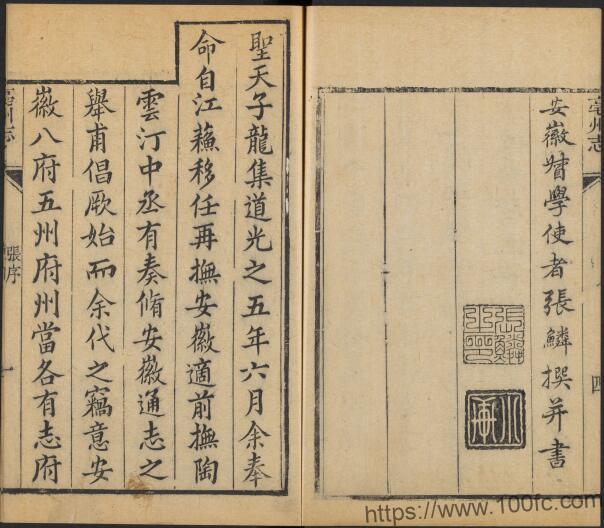 亳州志
四
安徽督學使者張鱗撰并書
張鱗之印
聖天子龍集道光之五年六月余奉
命自江蘇移任再撫安徽適前撫陶
雲汀中丞有奏脩安徽通志之
舉甫倡厥始而余代之竊意安
徽八府五州府州當各有志府
亳州志
張序
一
https://www.100fc.com